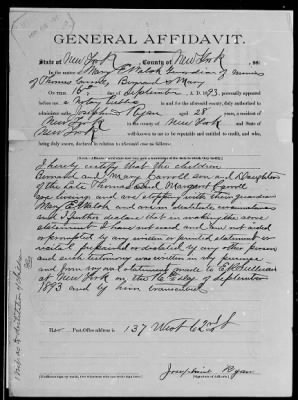 GENERAL AFFIDAVIT.
State of New York, County of New York, ss:
In the matter of Mary E Walsh Guardian of minors
of Thomas Carroll, Bernard & Mary
On this 16th day of September A. D. 1893, personally appeared
before me a Notary Public in and for the aforesaid county, duly authorized to
administer oaths, Josephine Ryan aged 28 years, a resident of
New York in the county of New York and State of
New York
well known to me to be reputable and entitled to credit, and who,
being duly sworn, declared in relation to aforesaid case as follows:
I hereby certify that the children
Bernard and Mary Carroll son and daughter
of the late Thomas and Margaret Carroll
are living and are stopping with their guardian
Mary E Walsh and are in destitute circumstances
and I further declare that in making the above
statement I have not used and am not aided
or prompted by any written or printed statement or
recital prepared or dictated by any other person
and such testimony was written in my presence
and from my oral statement made to E R Sullivan
at New York on the 16 day of September
1893 and by him transcribed
Post-office address is 137 West 62nd St
Josephine Ryan
(Signature of Affiant.)